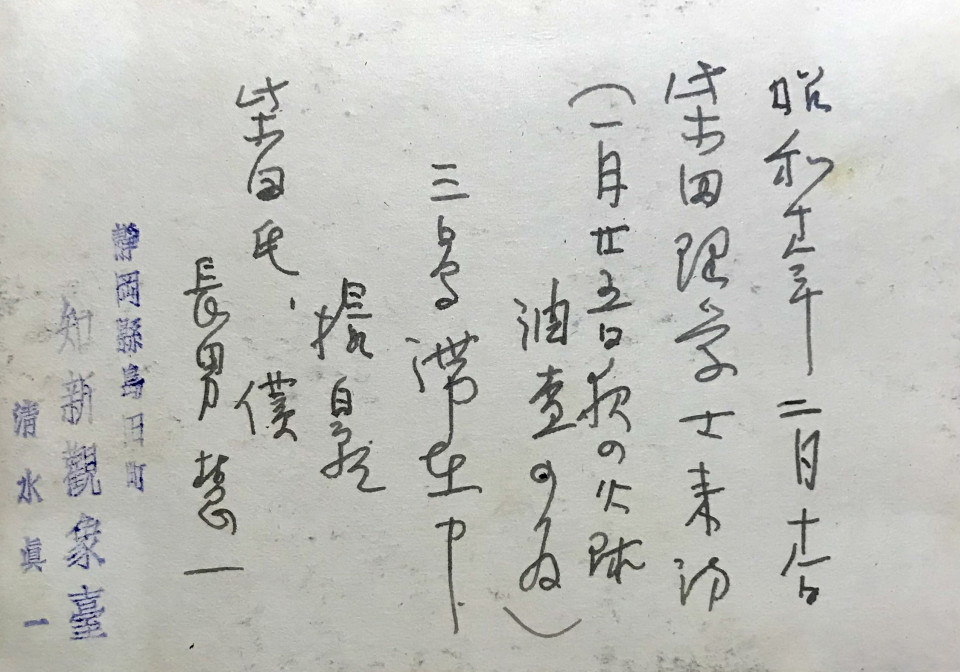 昭和十五年 二月十日
柴田理学士来訪
(一月廿五日夜の火球
調査の為)
三島滞在中
撮影
柴田氏、僕
長男
靜岡縣島田町
知新觀象臺
清水眞一